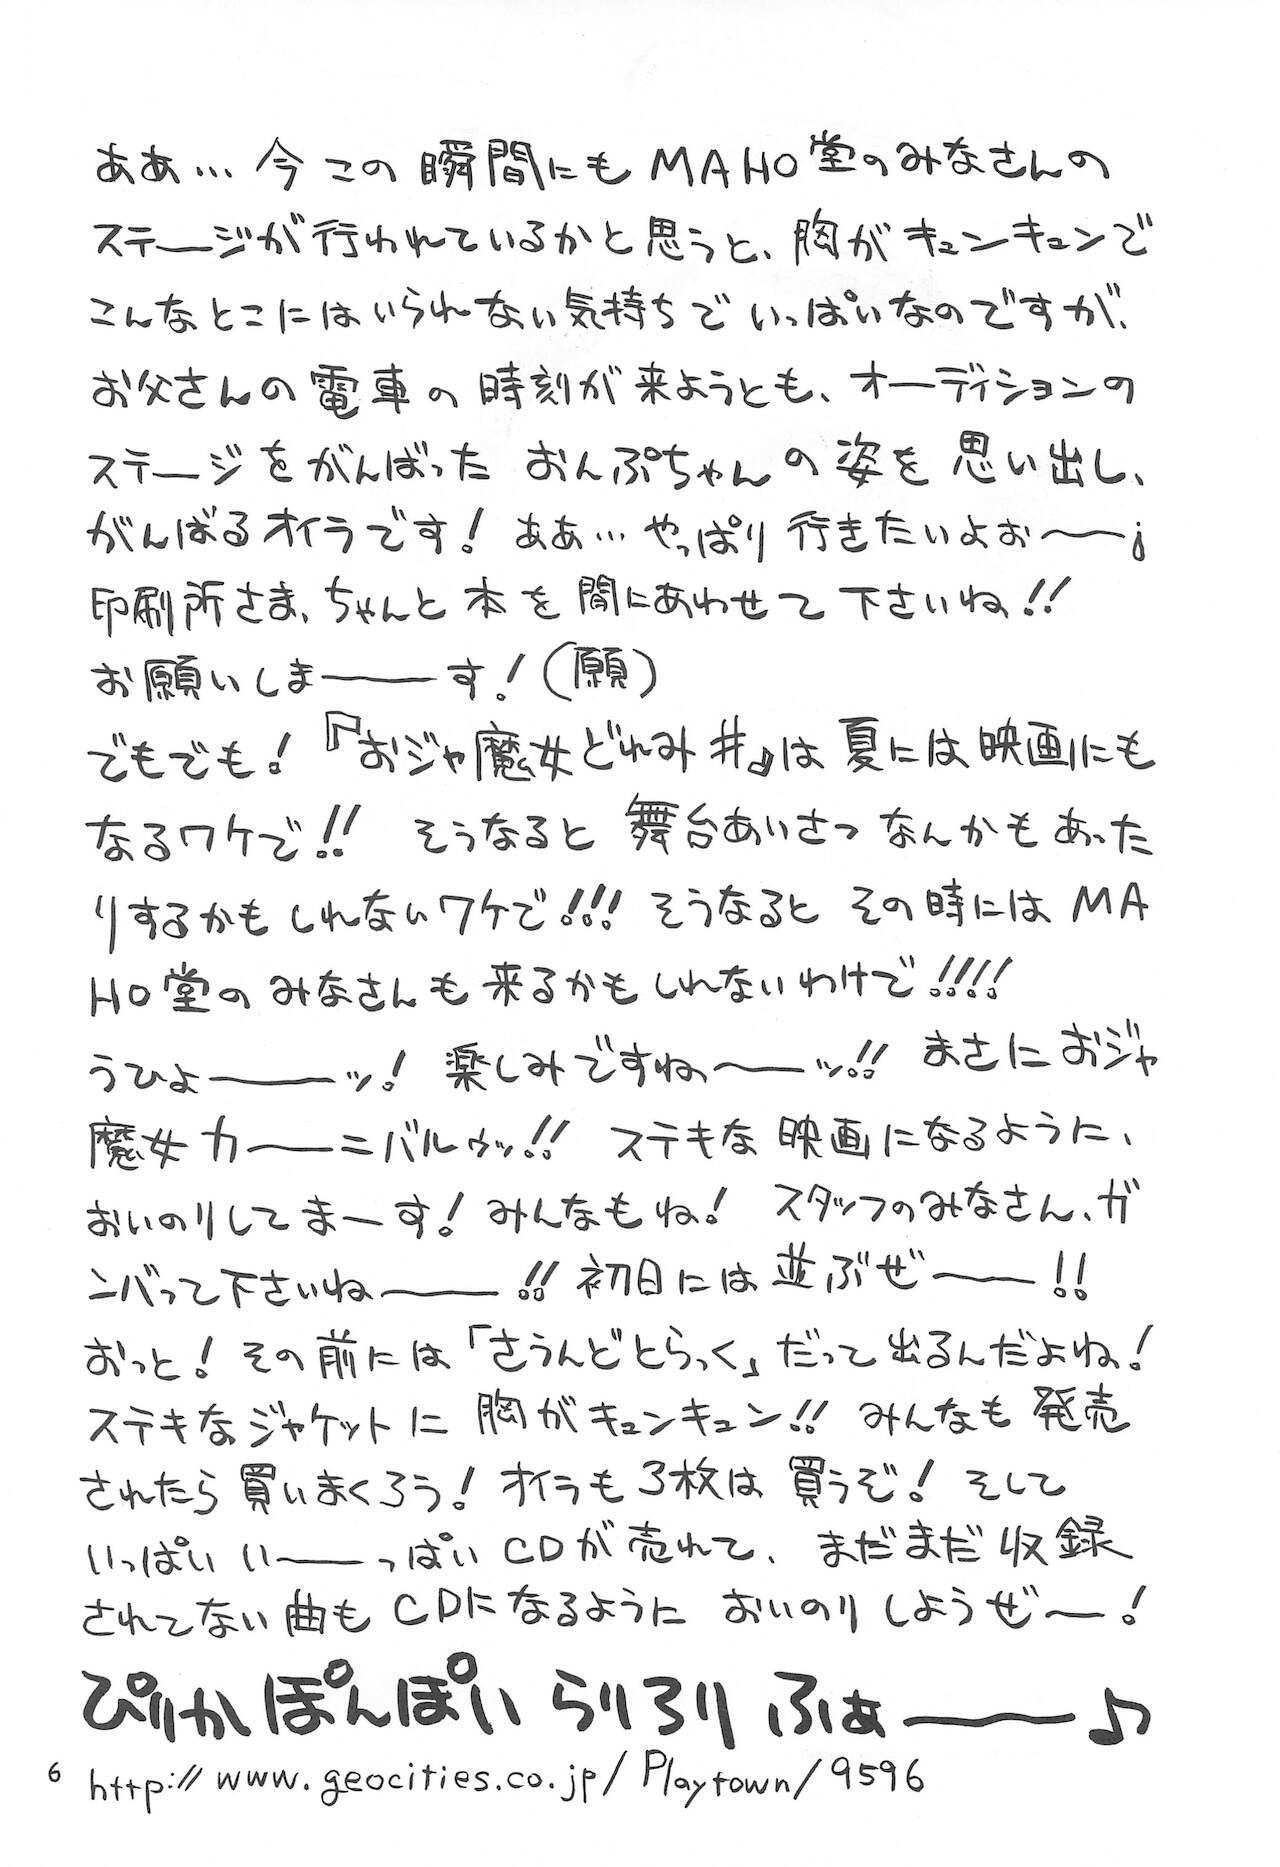 ああ… 今 この 瞬間にも MAHO堂のみなさんの
ステージが行われているかと思うと、胸がキュンキュンで
こんなとこにはいられない気持ちでいっぱいなのですが、
お父さんの電車の時刻が来ようとも、オーディションの
ステージをがんばった おんぷちゃんの姿を思い出し、
がんばるオイラです! ああ… やっぱり 行きたいよぉ〜〜¡
印刷所さま、ちゃんと本を間にあわせて下さいね!!
お願いしま――す!(願)
でもでも!『おジャ魔女どれみ♯』は夏には映画にも
なるワケで!! そうなると 舞台あいさつなんかもあった
りするかもしれないワケで!!! そうなると その時にはMA
HO堂のみなさんも来るかもしれないわけで!!!!
うひょ――ッ! 楽しみですね〜〜ッ!! まさにおジャ
魔女カーニバルゥッ!! ステキな映画になるように、
おいのりしてまーす! みんなもね! スタッフのみなさん、ガ
ンバって下さいね――!! 初日には並ぶぜ――!!
おっと! その前には「さうんどとらっく」だって出るんだよね!
ステキなジャケットに胸がキュンキュン!! みんなも発売
されたら買いまくろう! オイラも3枚は買うぞ! そして
いっぱいい――っぱいCDが売れて、まだまだ収録
されてない曲もCDになるように おいのりしようぜ〜!
ぴりかぽんぽい らりろり ふぁ――♪
6 http://www.geocities.co.jp/Playtown/9596